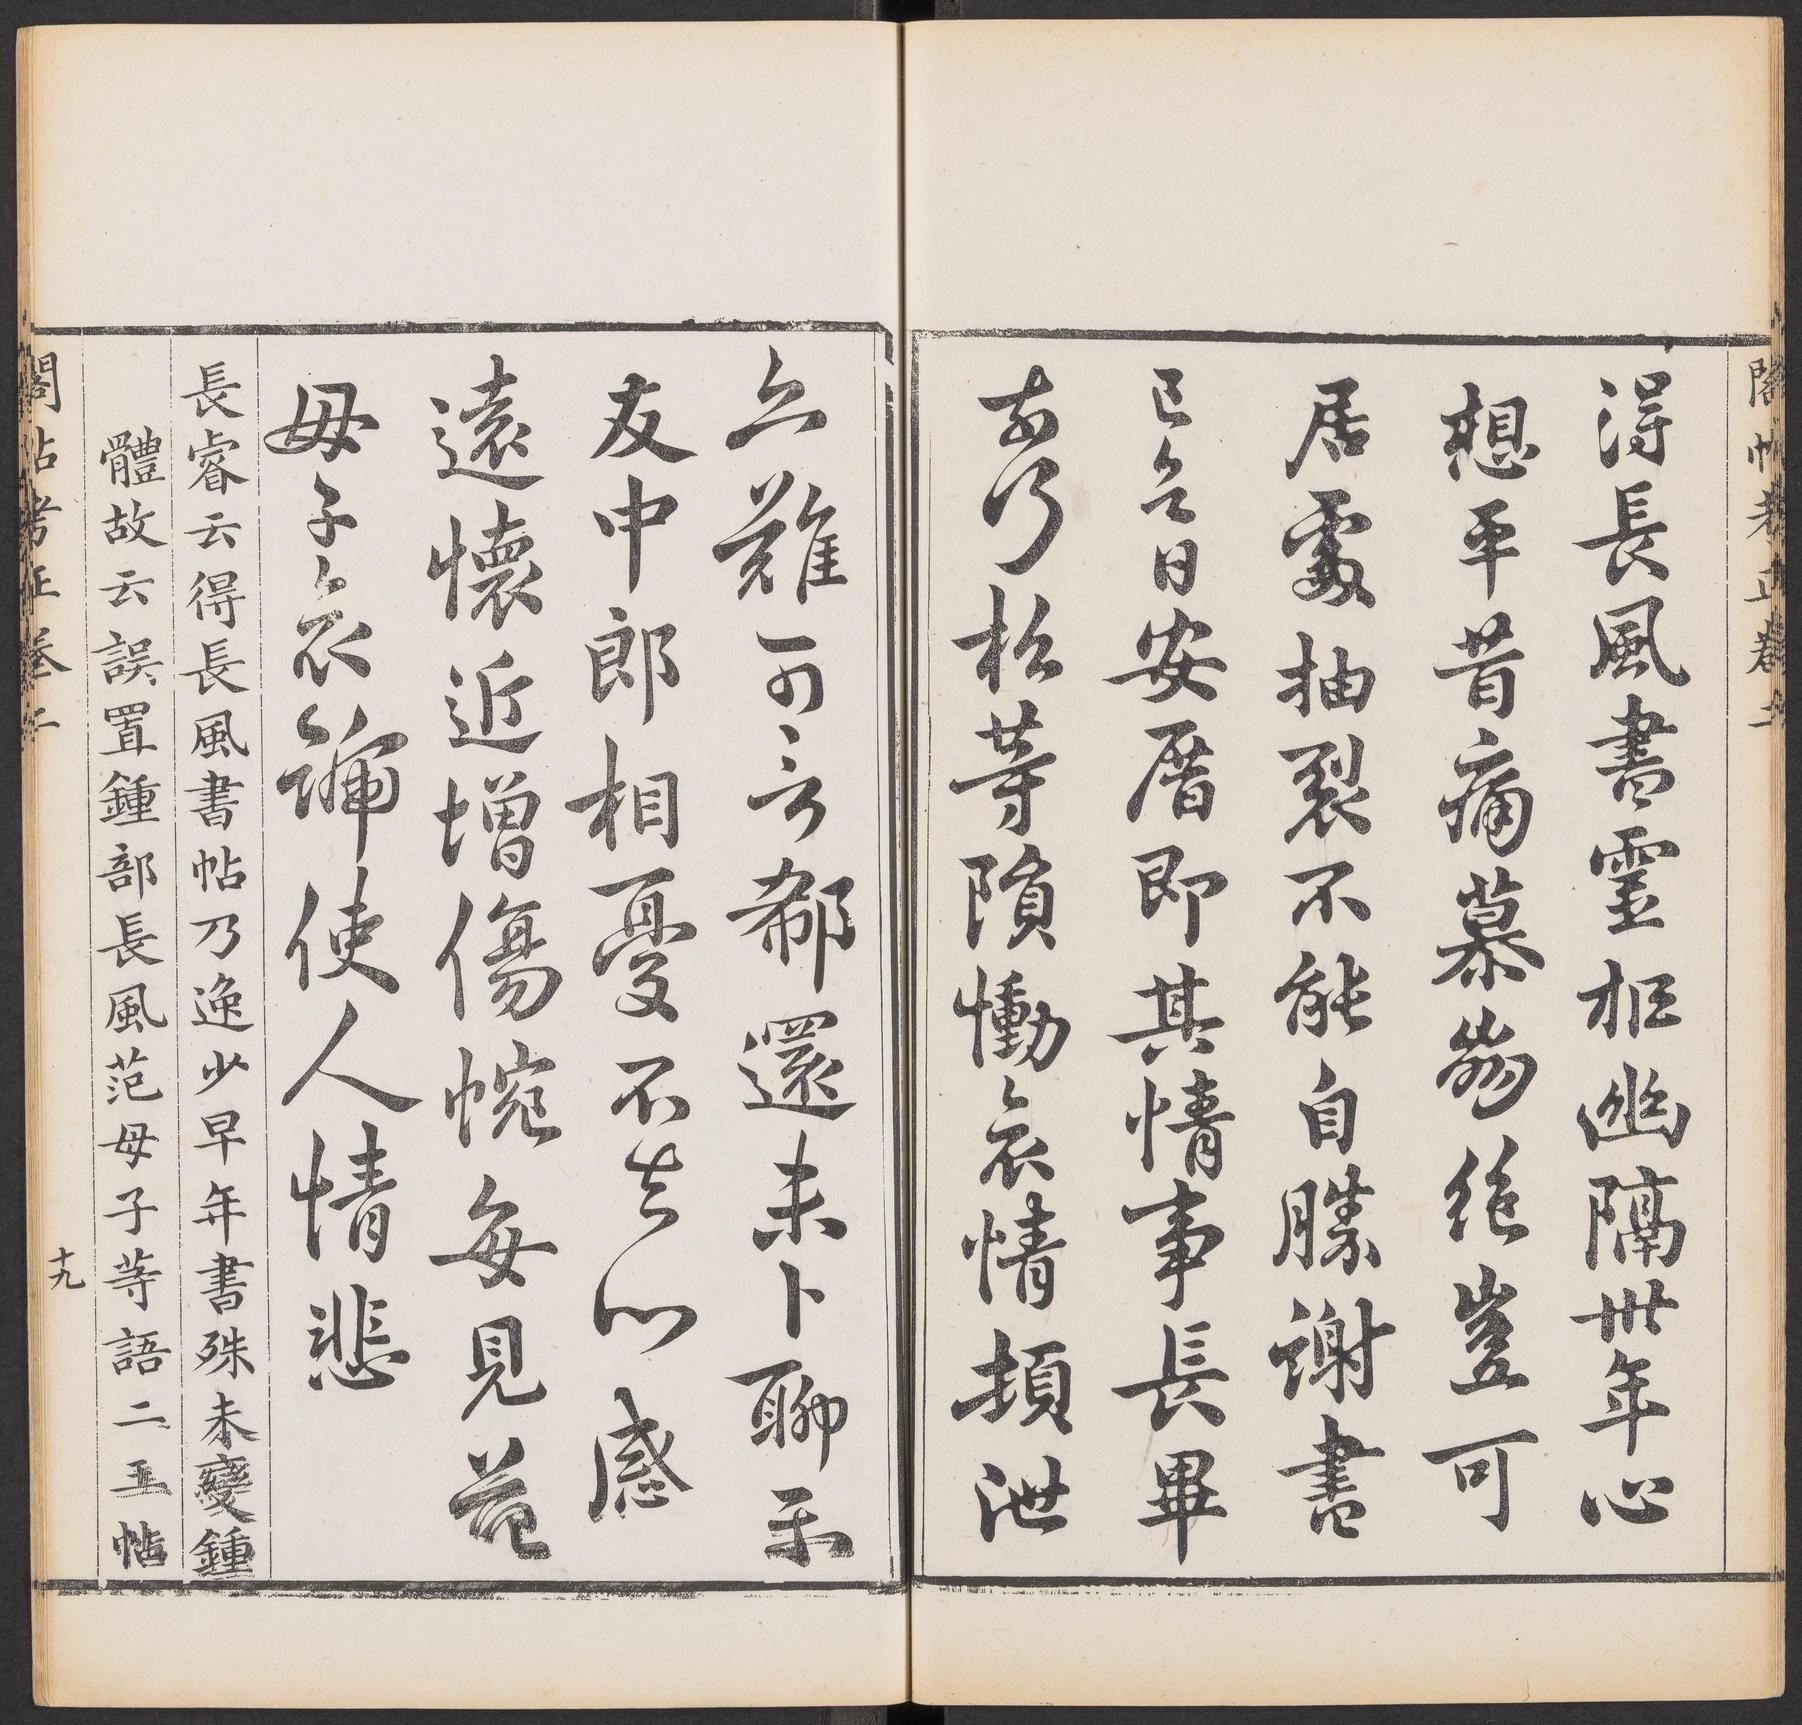 閣帖考正卷二
得長風書靈柩幽隔卅年心
想平昔痛慕崩絕豈可
居處抽裂不能自勝謝書
已令日安厝即其情事長畢
奈何松等隕慟哀情頓泄
亦難可言郗還未卜聊示
友中郎相憂不去心感
遠懷近增傷惋每見范
母子哀號使人情悲
長睿云得長風書帖乃逸少早年書殊未變鍾
體故云誤置鍾部長風范母子等語二王帖
閣帖考正卷二
十九